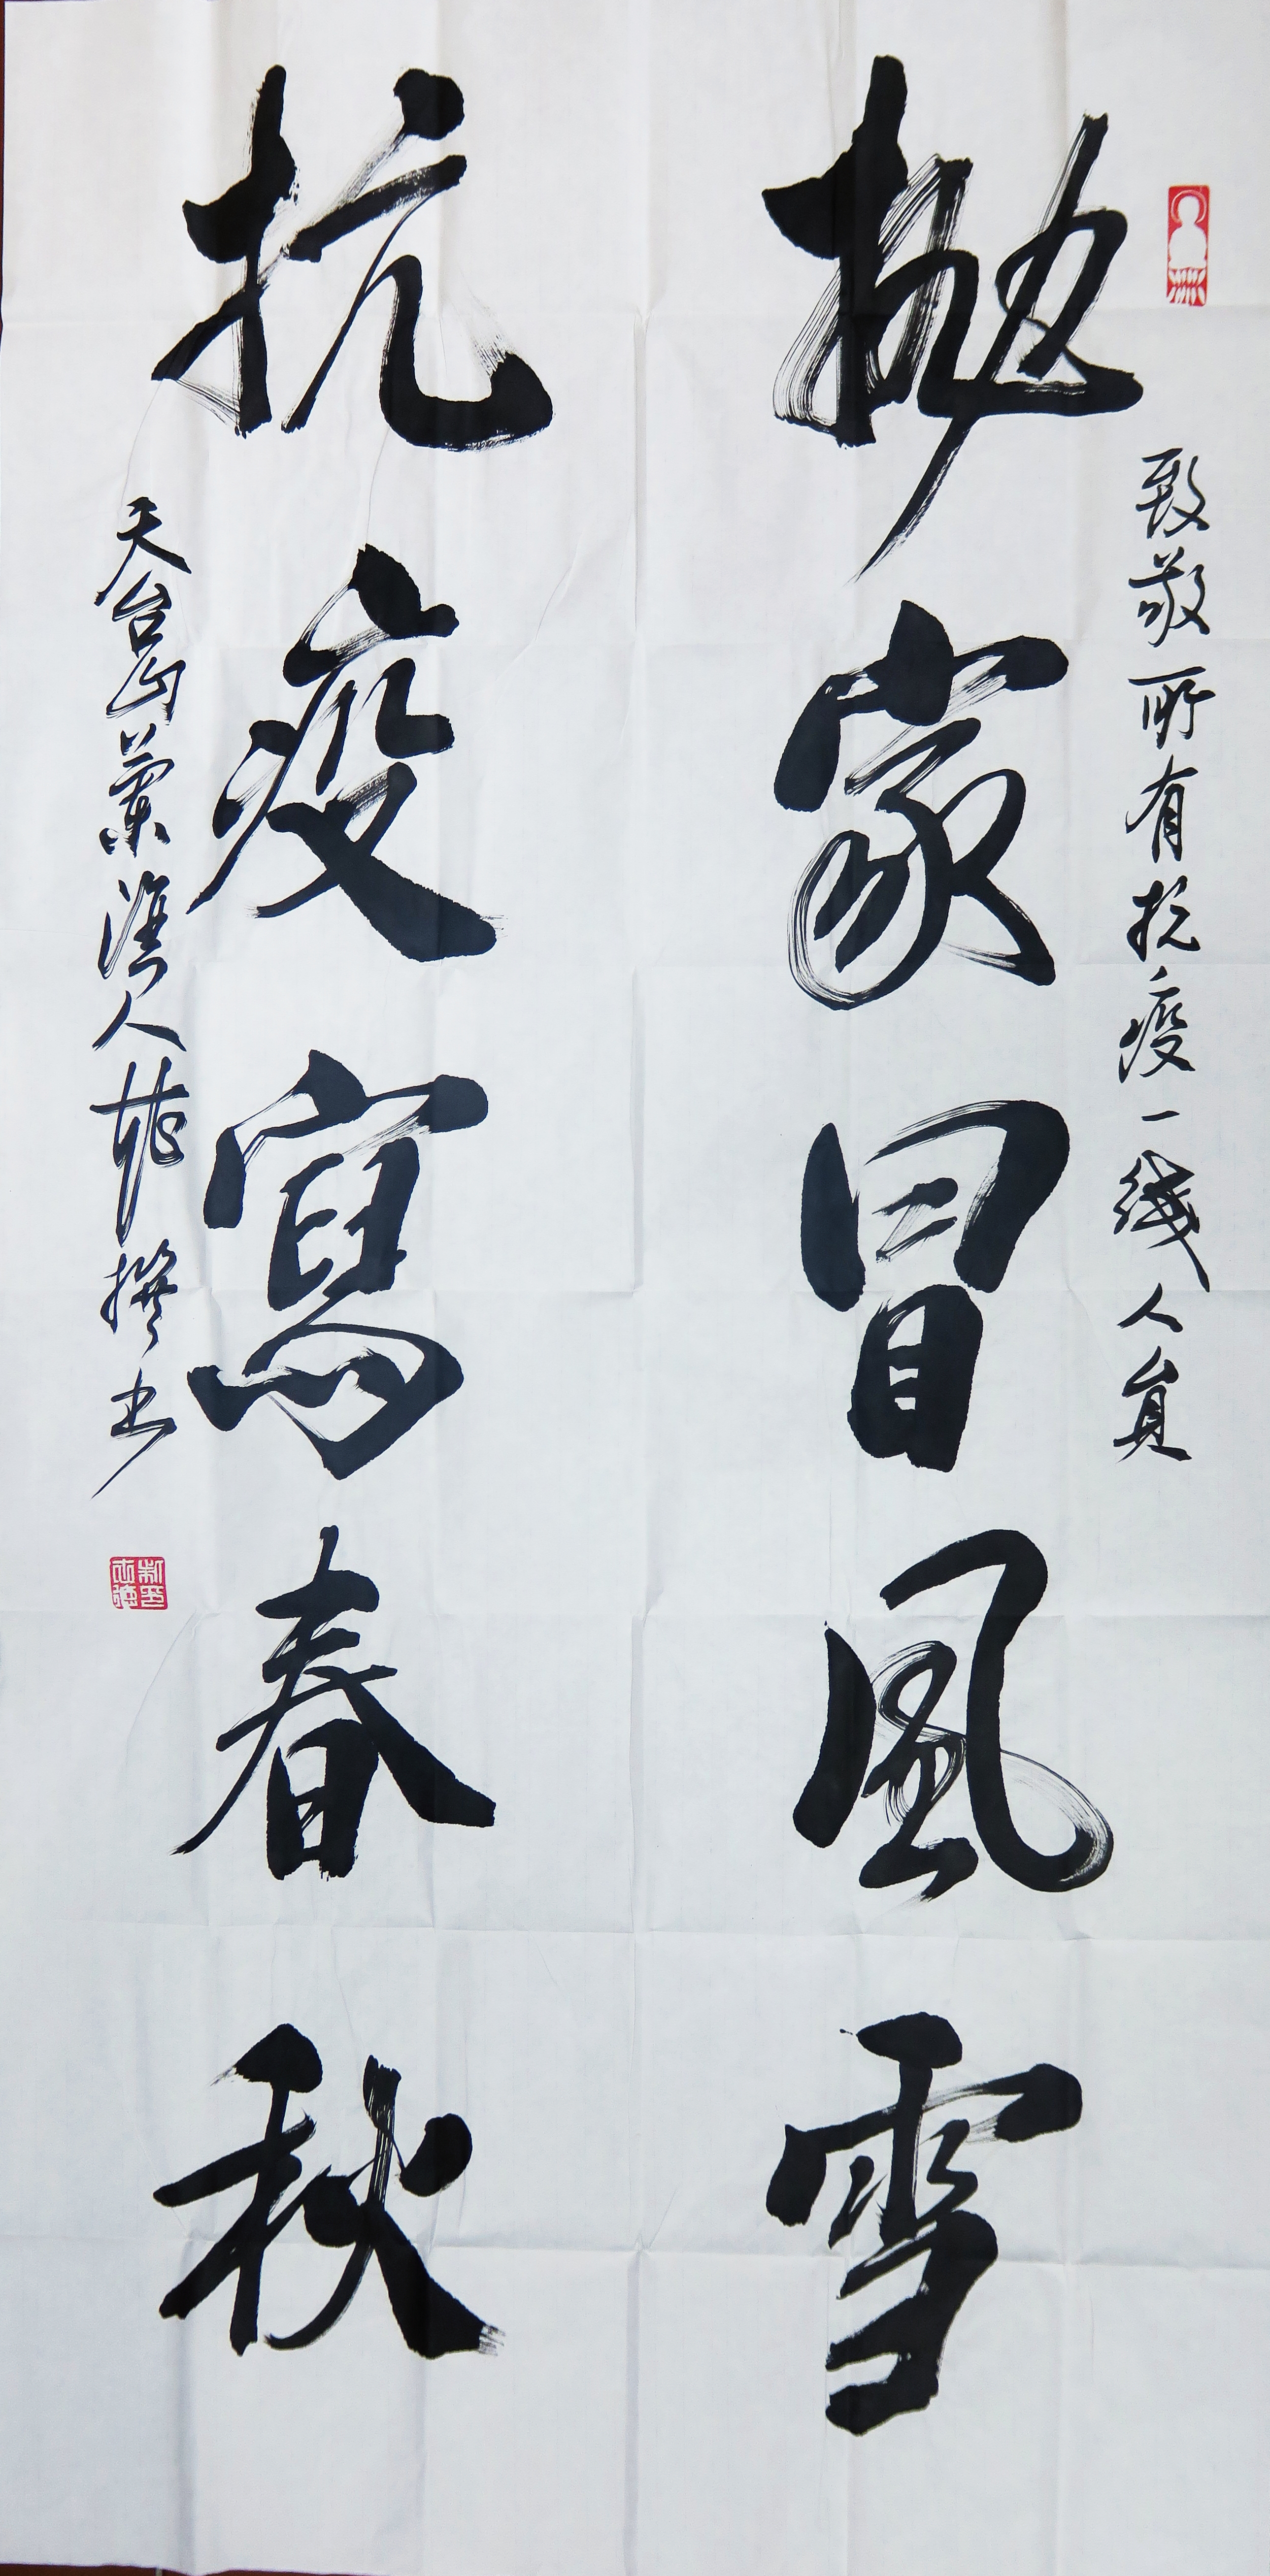 致敬所有抗疫一线人員
抛家冒風雪
抗疫寫春秋
天台山蘭漁人 撰书